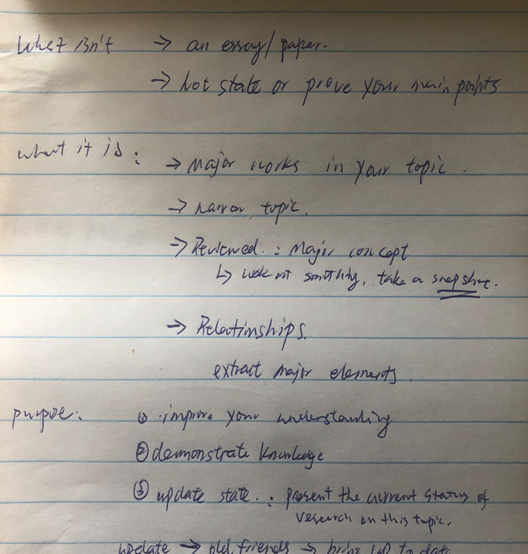 What isn't → an essay/paper.
→ Not state or prove your main points
what it is: → Major works in your topic.
→ narrow topic.
→ Reviewed : Major concept
↳ look at something, take a snapshot.
→ Relationships.
extract major elements.
purpose: ① improve your understanding
② demonstrate knowledge
③ update state : present the current status of
research on this topic.
update → old friends → bring up to date